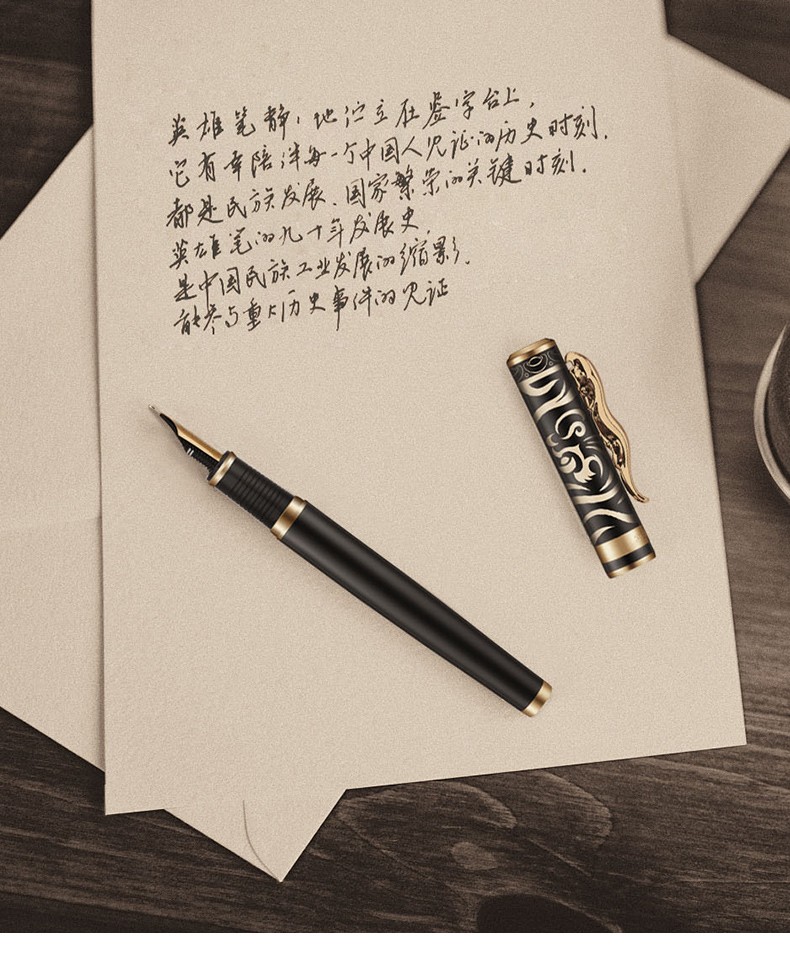 英雄笔静静地伫立在鉴字台上，
它有幸陪伴每一个中国人见证的历史时刻.
都是民族发展、国家繁荣的关键时刻.
英雄笔的九十年发展史.
是中国民族工业发展的缩影.
能参与重大历史事件的见证